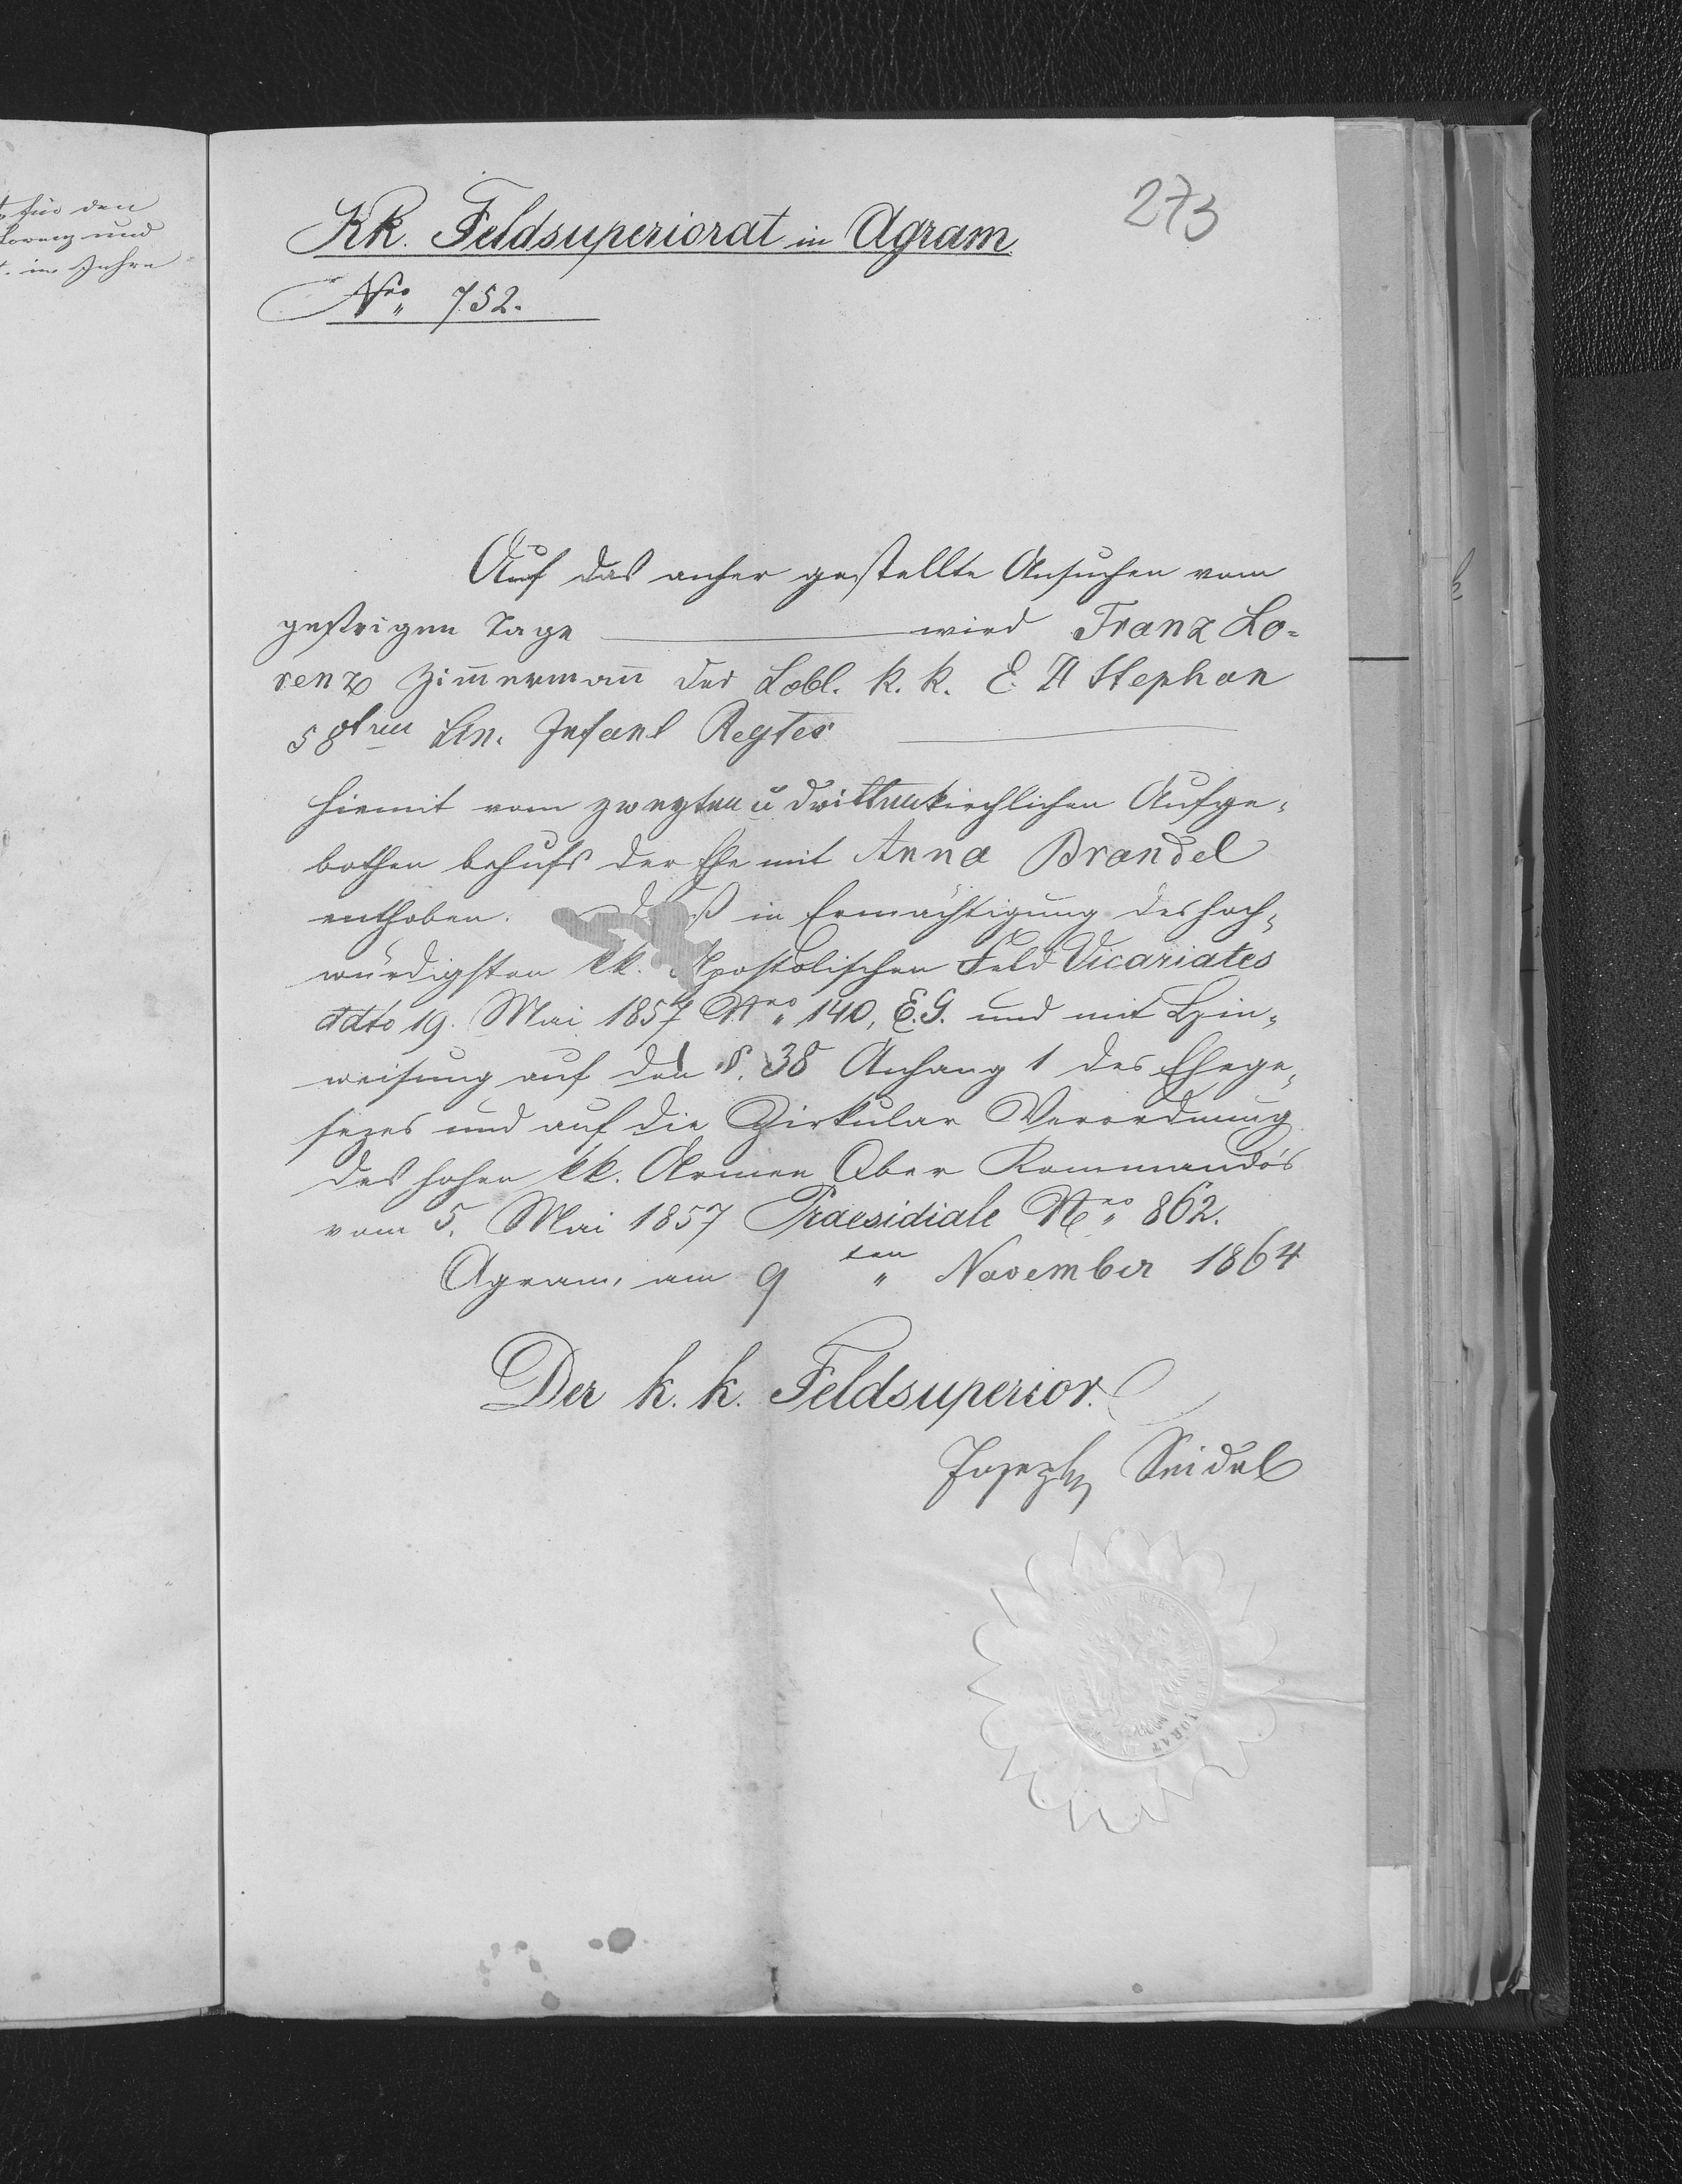 für den
Lorenz und
im Jahre
273
KK. Feldsuperiorat in Agram
Nro 752.
Auf das anher gestellte Ansuchen vom
gestrigen Tage wird Franz Lo-
renz Zimmermann des Löbl. k. k. E. H Stephan
58ten Lin. Infant Regtes
hiemit vom zweyten u dritten kirchlichen Aufge-
bothen behufs der Ehe mit Anna Brandel
enthoben. in Ermächtigung des hoch-
würdigsten kk. Apostolischen Feld Vicariates
ddto 19. Mai 1857 Nro 140, E.G. und mit Hin-
weisung auf den §. 38 Anhang 1 des Ehege-
sezes und auf die Zirkular Verordnung
des hohen kk. Armee Ober Kommando's
vom 5. Mai 1857 Praesidiale Nro 862.
Agram, am 9ten November 1864
Der k. k. Feldsuperior.
Joseph Seidel